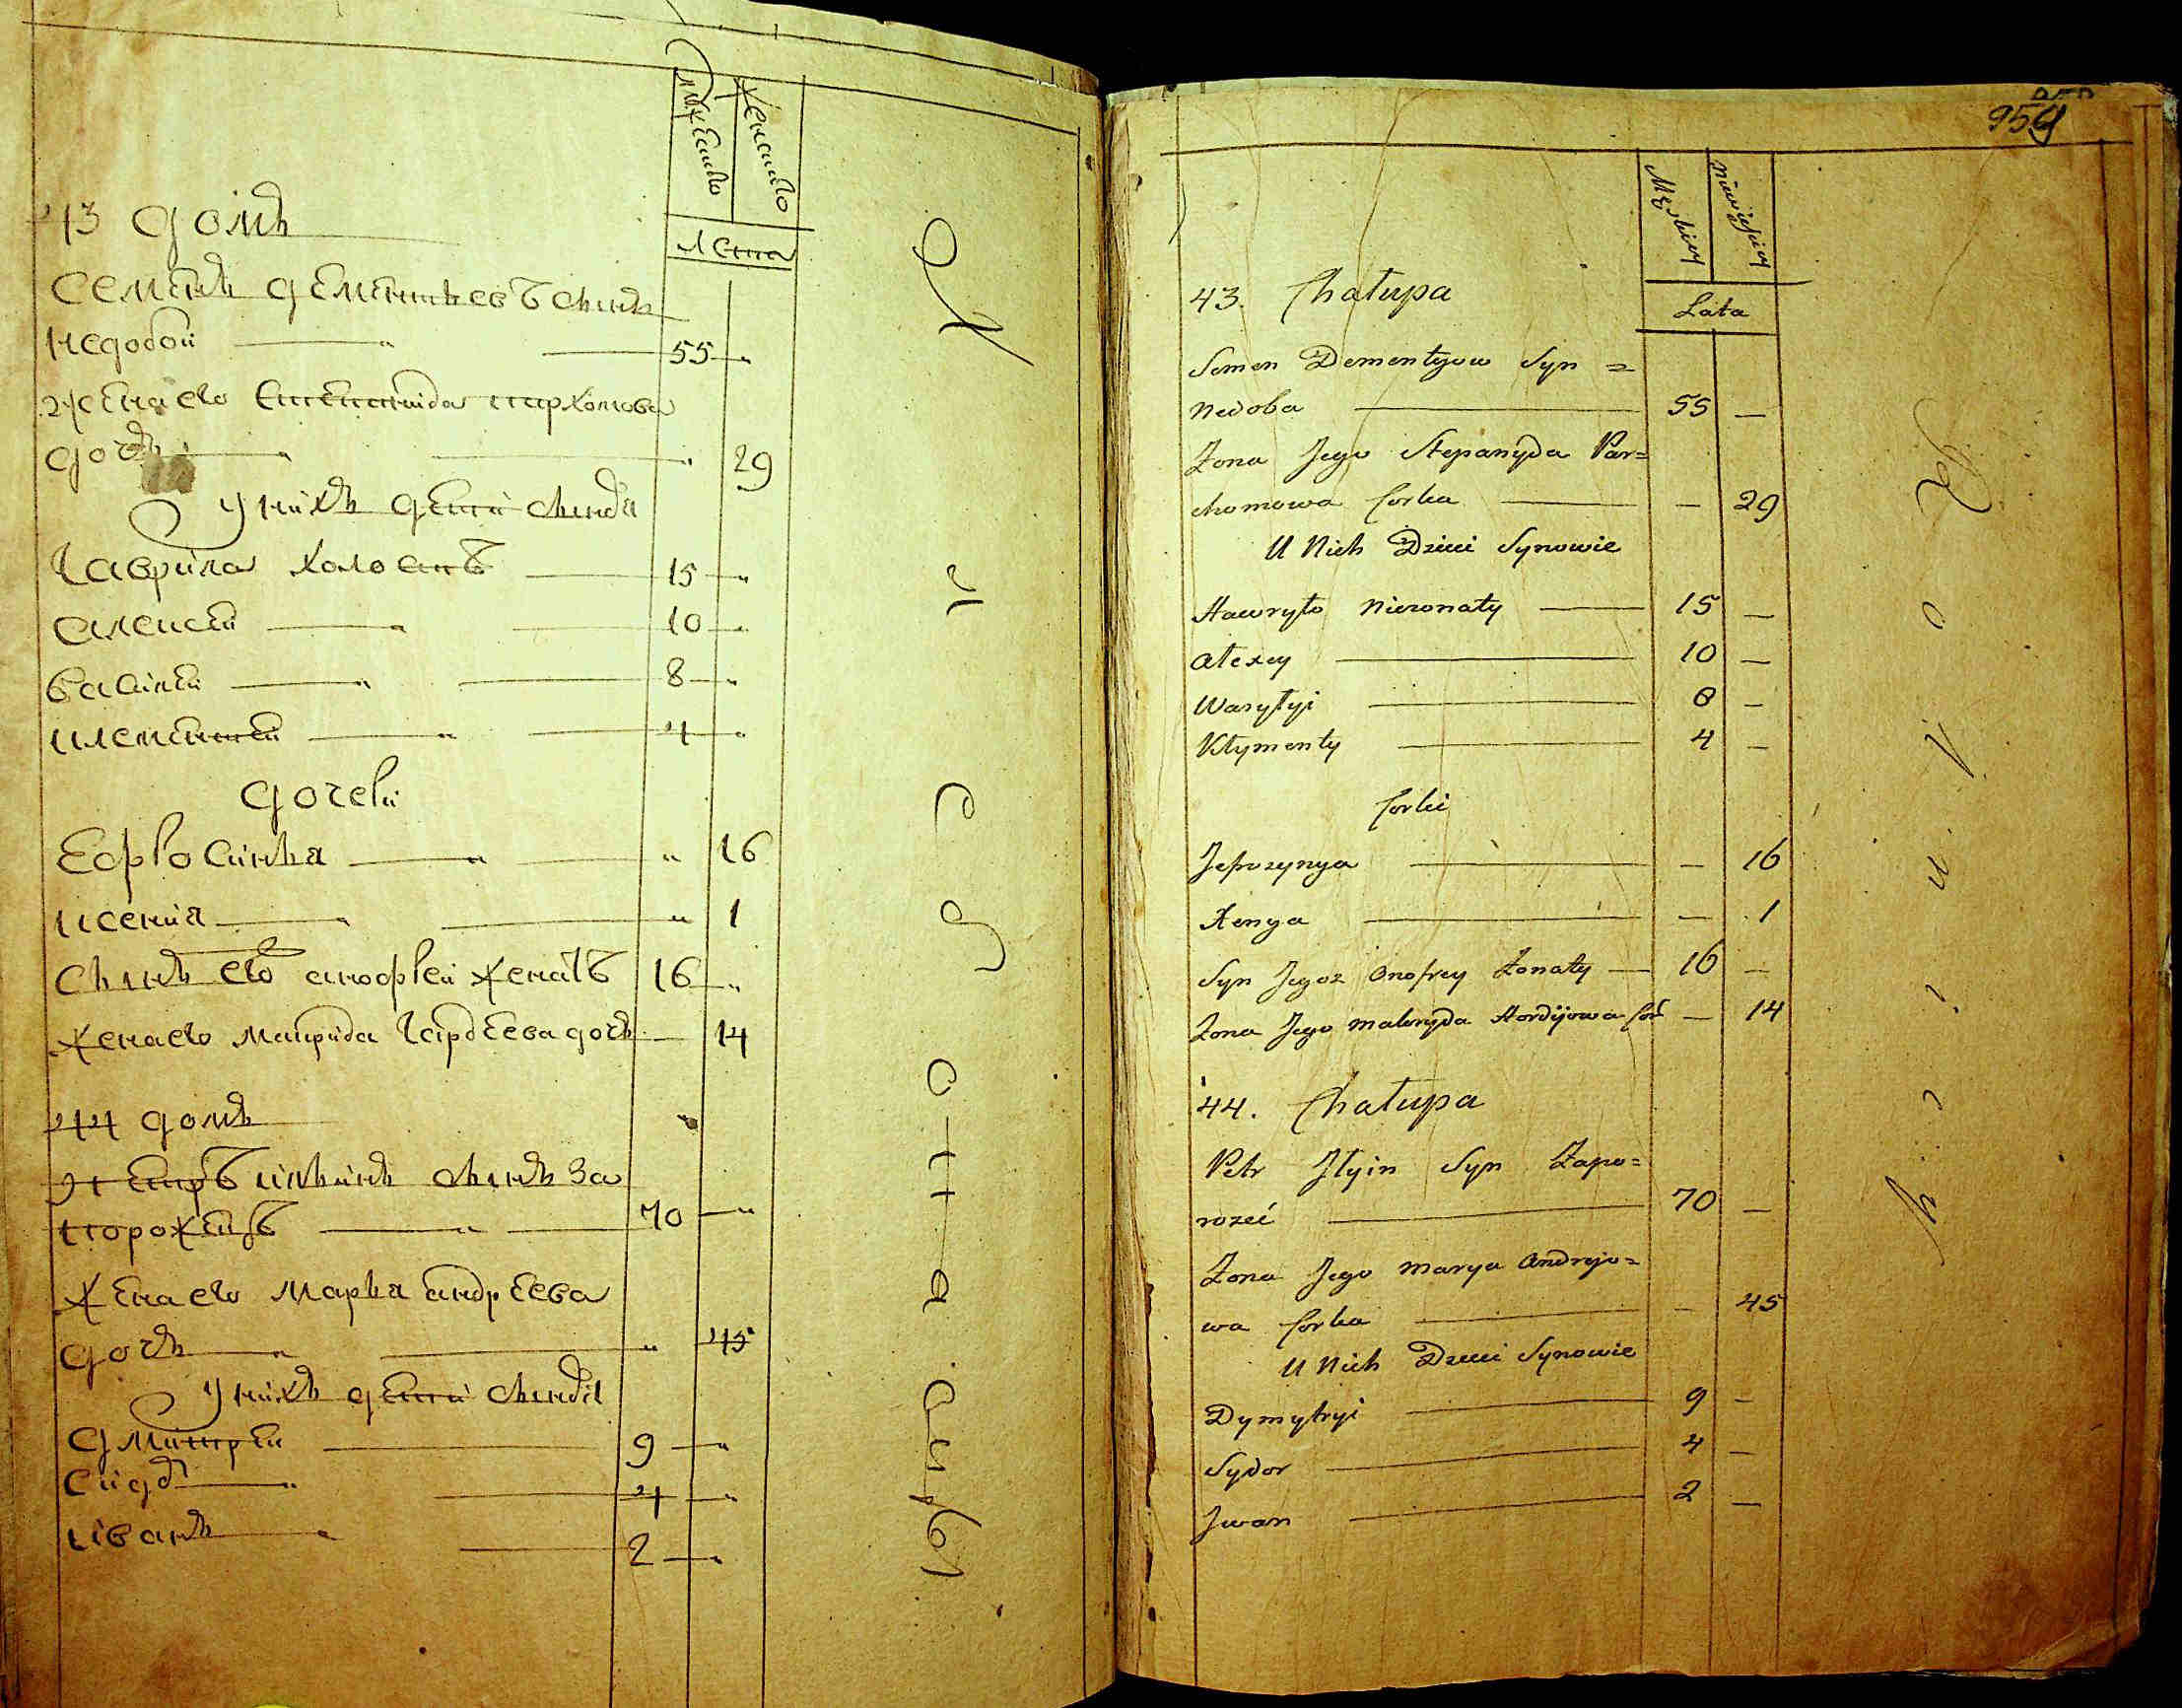 мужеска
женска
лета
43 домъ
Семенъ Дементьевъ сынъ
Недобой 55
жена его Степанида Пархомова
дочь 29
У нихъ дети сыновя
Гаврила холостъ 15
Алексей 10
Василей 8
Клементей 4
дочери
Ефросинья 16
Ксения 1
Сынъ его Анофрей женатъ 16
жена его Маврида Гордеева дочь 14
44 домъ
Петръ Ильинъ сынъ За
порожецъ 70
жена его Марья Андреева
дочь 45
У нихъ дети сыновя
Дмитрей 9
Сидоръ 4
Иванъ 2
959
Męskiey
Niewieściey
Lata
43. Chałupa
Semen Dementyow Syn =
Nedoba 55 —
Żona Jego Stepanyda Par=
chomowa Corka — 29
U Nich Dzieci Synowie
Hawryło Nieżonaty 15 —
Alexey 10 —
Wasylyi 8 —
Klymenty 4 —
Corki
Jefrozynya — 16
Xenya — 1
Syn Jegoż Onofrey Żonaty 16 —
Żona Jego Makryda Hordijowa Cor — 14
44. Chałupa
Petr Jlyin Syn Zapo=
rożec 70 —
Żona Jego Marya Andrejo=
wa Corka — 45
U Nich Dzieci Synowie
Dymytryi 9 —
Sydor 4 —
Jwan 2 —